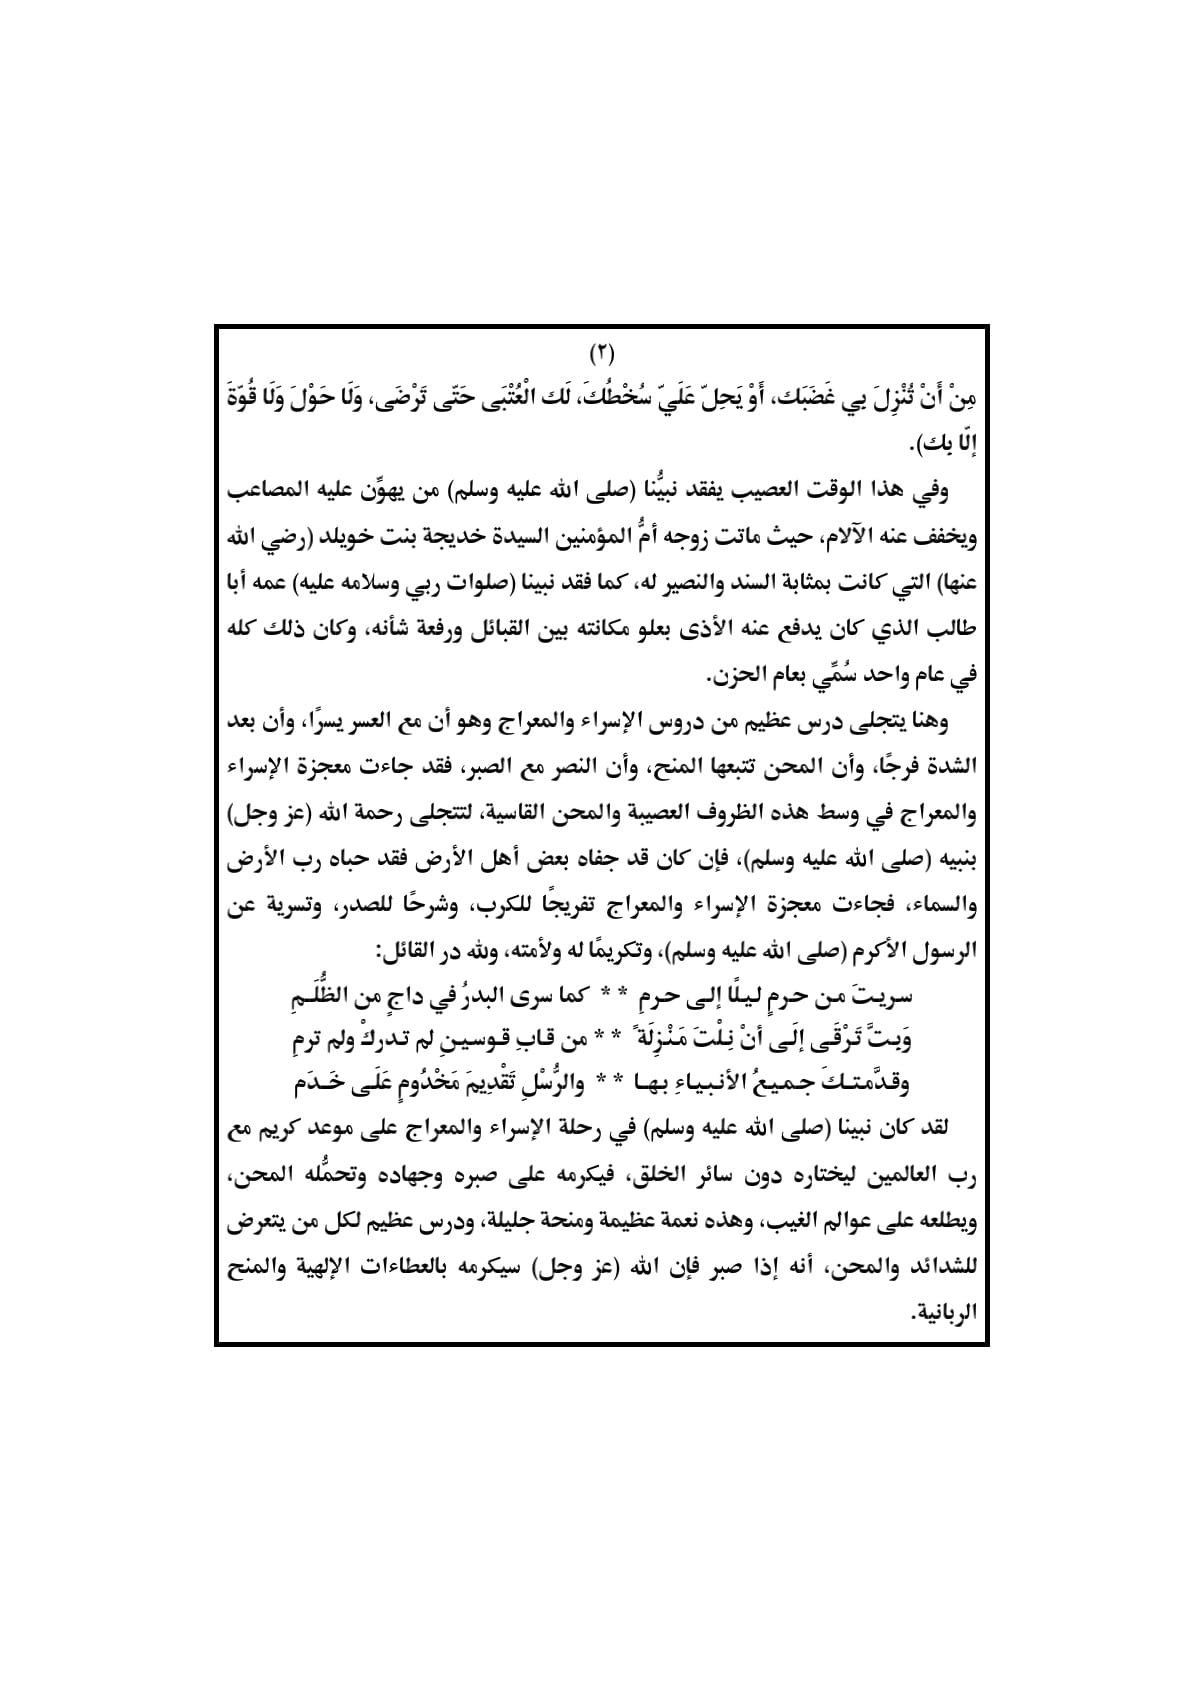 (٢)
مِنْ أَنْ تُنْزِلَ بِي غَضَبَك، أَوْ يَحِلّ عَلَيّ سُخْطُكَ، لَك الْعُتْبَى حَتّى تَرْضَى، وَلَا حَوْلَ وَلَا قُوّةَ
إلّا بِك).
وفي هذا الوقت العصيب يفقد نبيُّنا (صلى الله عليه وسلم) من يهوِّن عليه المصاعب
ويخفف عنه الآلام، حيث ماتت زوجه أمُّ المؤمنين السيدة خديجة بنت خويلد (رضي الله
عنها) التي كانت بمثابة السند والنصير له، كما فقد نبينا (صلوات ربي وسلامه عليه) عمه أبا
طالب الذي كان يدفع عنه الأذى بعلو مكانته بين القبائل ورفعة شأنه، وكان ذلك كله
في عام واحد سُمِّي بعام الحزن.
وهنا يتجلى درس عظيم من دروس الإسراء والمعراج وهو أن مع العسر يسرًا، وأن بعد
الشدة فرجًا، وأن المحن تتبعها المنح، وأن النصر مع الصبر، فقد جاءت معجزة الإسراء
والمعراج في وسط هذه الظروف العصيبة والمحن القاسية، لتتجلى رحمة الله (عز وجل)
بنبيه (صلى الله عليه وسلم)، فإن كان قد جفاه بعض أهل الأرض فقد حباه رب الأرض
والسماء، فجاءت معجزة الإسراء والمعراج تفريجًا للكرب، وشرحًا للصدر، وتسرية عن
الرسول الأكرم (صلى الله عليه وسلم)، وتكريمًا له ولأمته، ولله در القائل:
سريتَ من حرمٍ ليلًا إلى حرمِ ** كما سرى البدرُ في داجٍ من الظُّلَـمِ
وَبِتَّ تَرْقَى إلَى أنْ نِلْتَ مَنْزِلَة ً ** من قابِ قوسينِ لم تدركْ ولم ترمِ
وقدَّمتكَ جميعُ الأنبياءِ بها ** والرُّسْلِ تَقْدِيمَ مَخْدُومٍ عَلَى خَـدَم
لقد كان نبينا (صلى الله عليه وسلم) في رحلة الإسراء والمعراج على موعد كريم مع
رب العالمين ليختاره دون سائر الخلق، فيكرمه على صبره وجهاده وتحمُّله المحن،
ويطلعه على عوالم الغيب، وهذه نعمة عظيمة ومنحة جليلة، ودرس عظيم لكل من يتعرض
للشدائد والمحن، أنه إذا صبر فإن الله (عز وجل) سيكرمه بالعطاءات الإلهية والمنح
الربانية.